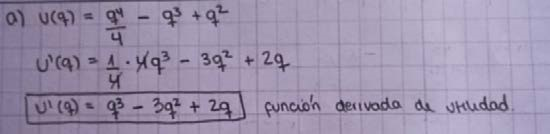 a) U(q) = q⁴/4 - q³ + q²
U'(q) = 1/4 · 4q³ - 3q² + 2q
U'(q) = q³ - 3q² + 2q función derivada de utilidad.